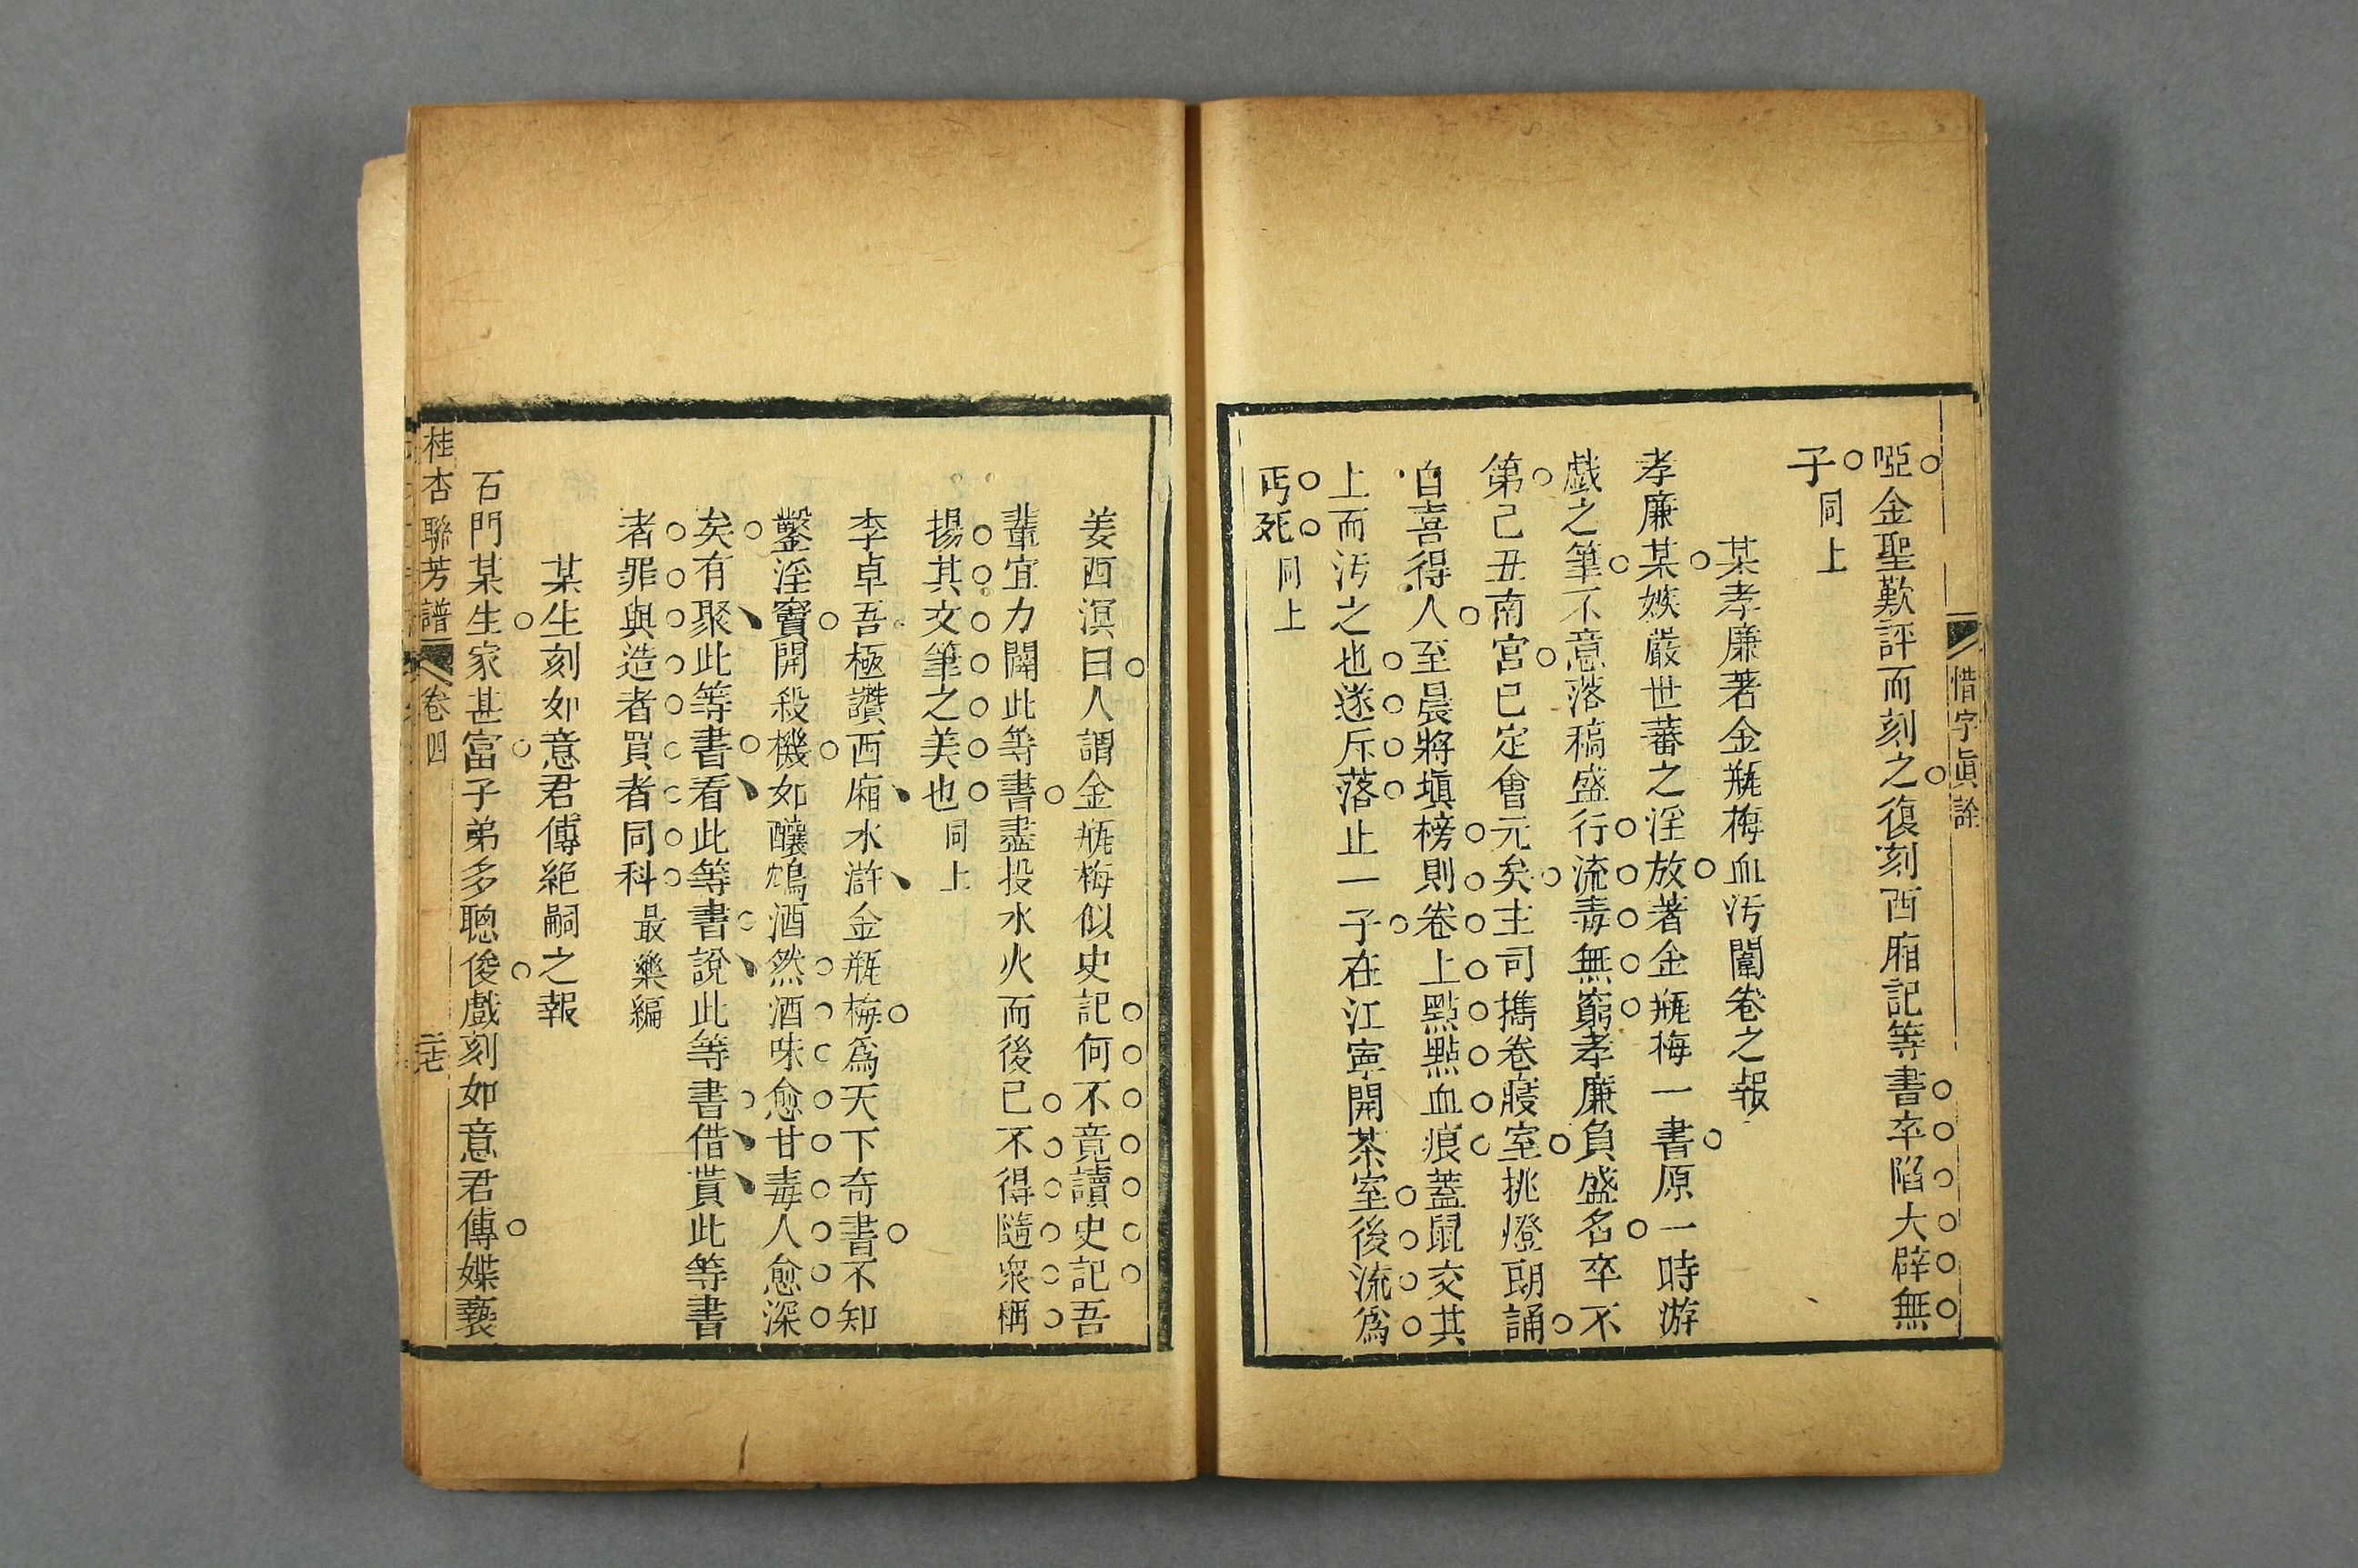 惜字眞詮
啞金聖歎評而刻之復刻西廂記等書卒陷大辟無
子同上
某孝廉著金瓶梅血汚闈卷之報
孝廉某嫉嚴世蕃之淫放著金瓶梅一書原一時游
戲之筆不意落稿盛行流毒無窮孝廉負盛名卒不
第己丑南宮已定會元矣主司携卷寢室挑燈朗誦
自喜得人至晨將塡榜則卷上點點血痕蓋鼠交其
上而汚之也遂斥落止一子在江寧開茶室後流爲
丐死同上
姜西溟曰人謂金瓶梅似史記何不竟讀史記吾
輩宜力闢此等書盡投水火而後已不得隨衆稱
揚其文筆之美也同上
李卓吾極讚西廂水滸金瓶梅爲天下奇書不知
鑿淫竇開殺機如釀鴆酒然酒味愈甘毒人愈深
矣有聚此等書看此等書說此等書借貰此等書
者罪與造者買者同科最樂編
某生刻如意君傳絕嗣之報
石門某生家甚富子弟多聰俊戲刻如意君傳媟褻
桂杏聯芳譜 卷四 二七